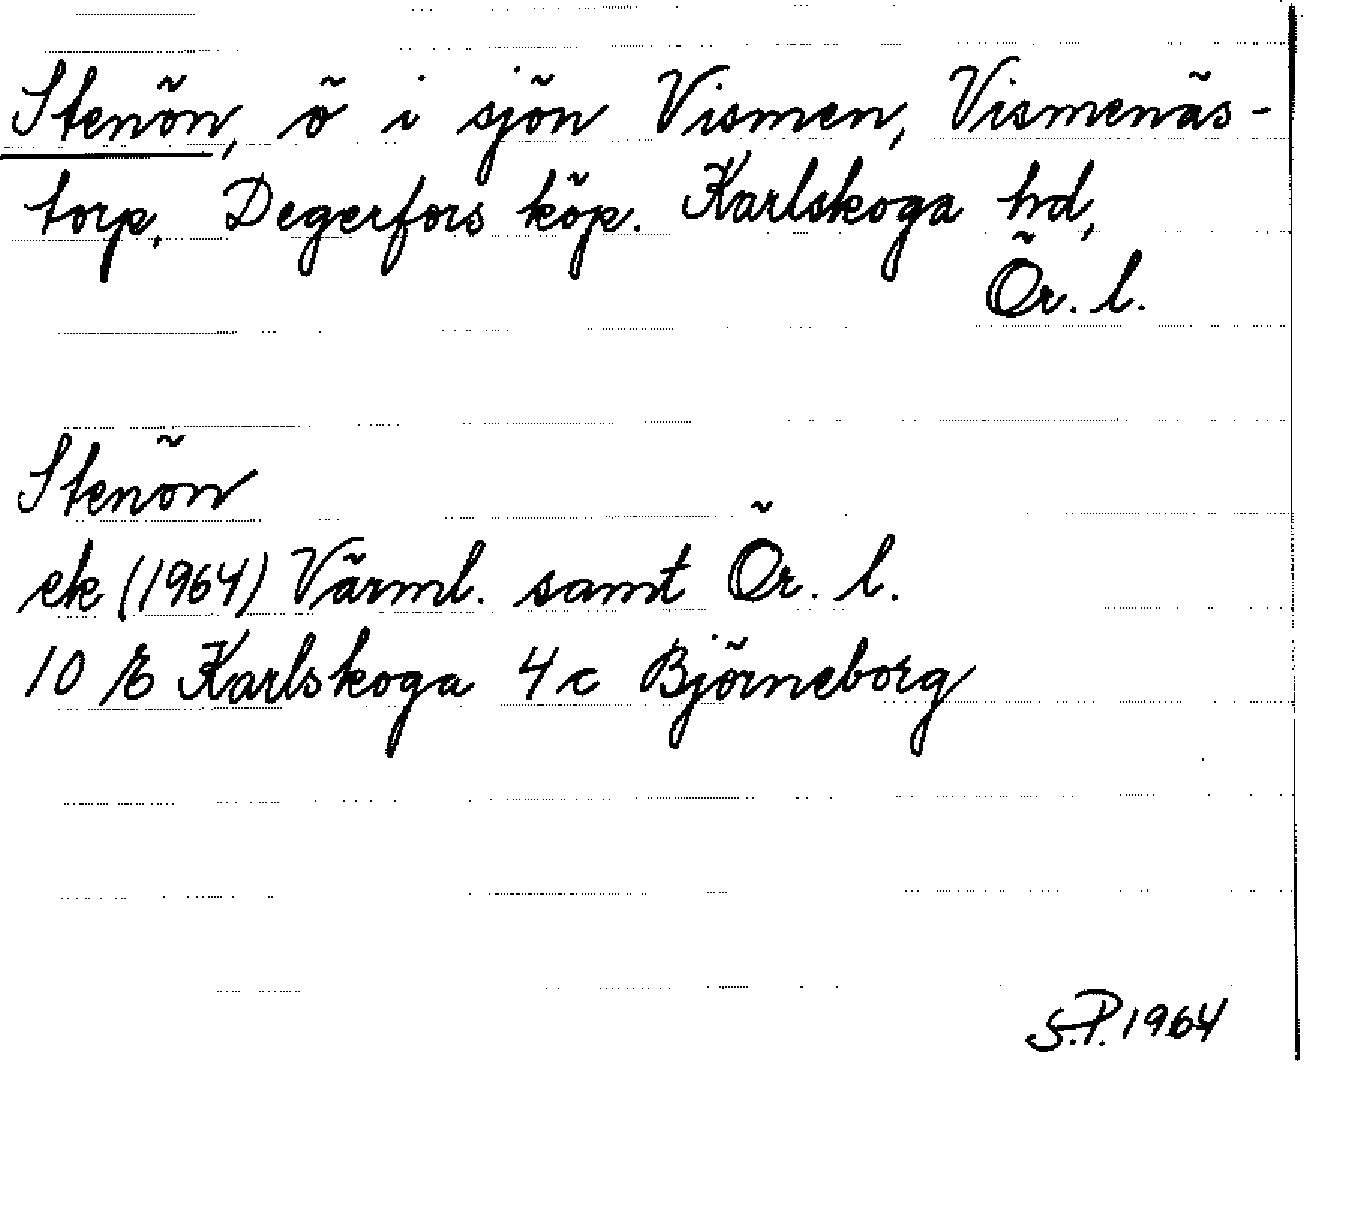 Stenön, ö i sjön Vismen, Vismenäs-
torp, Degerfors köp. Karlskoga hd,
Ör. l.
Stenön
ek (1964) Värml. samt Ör. l.
10 E Karlskoga 4c Björneborg
S.P. 1964